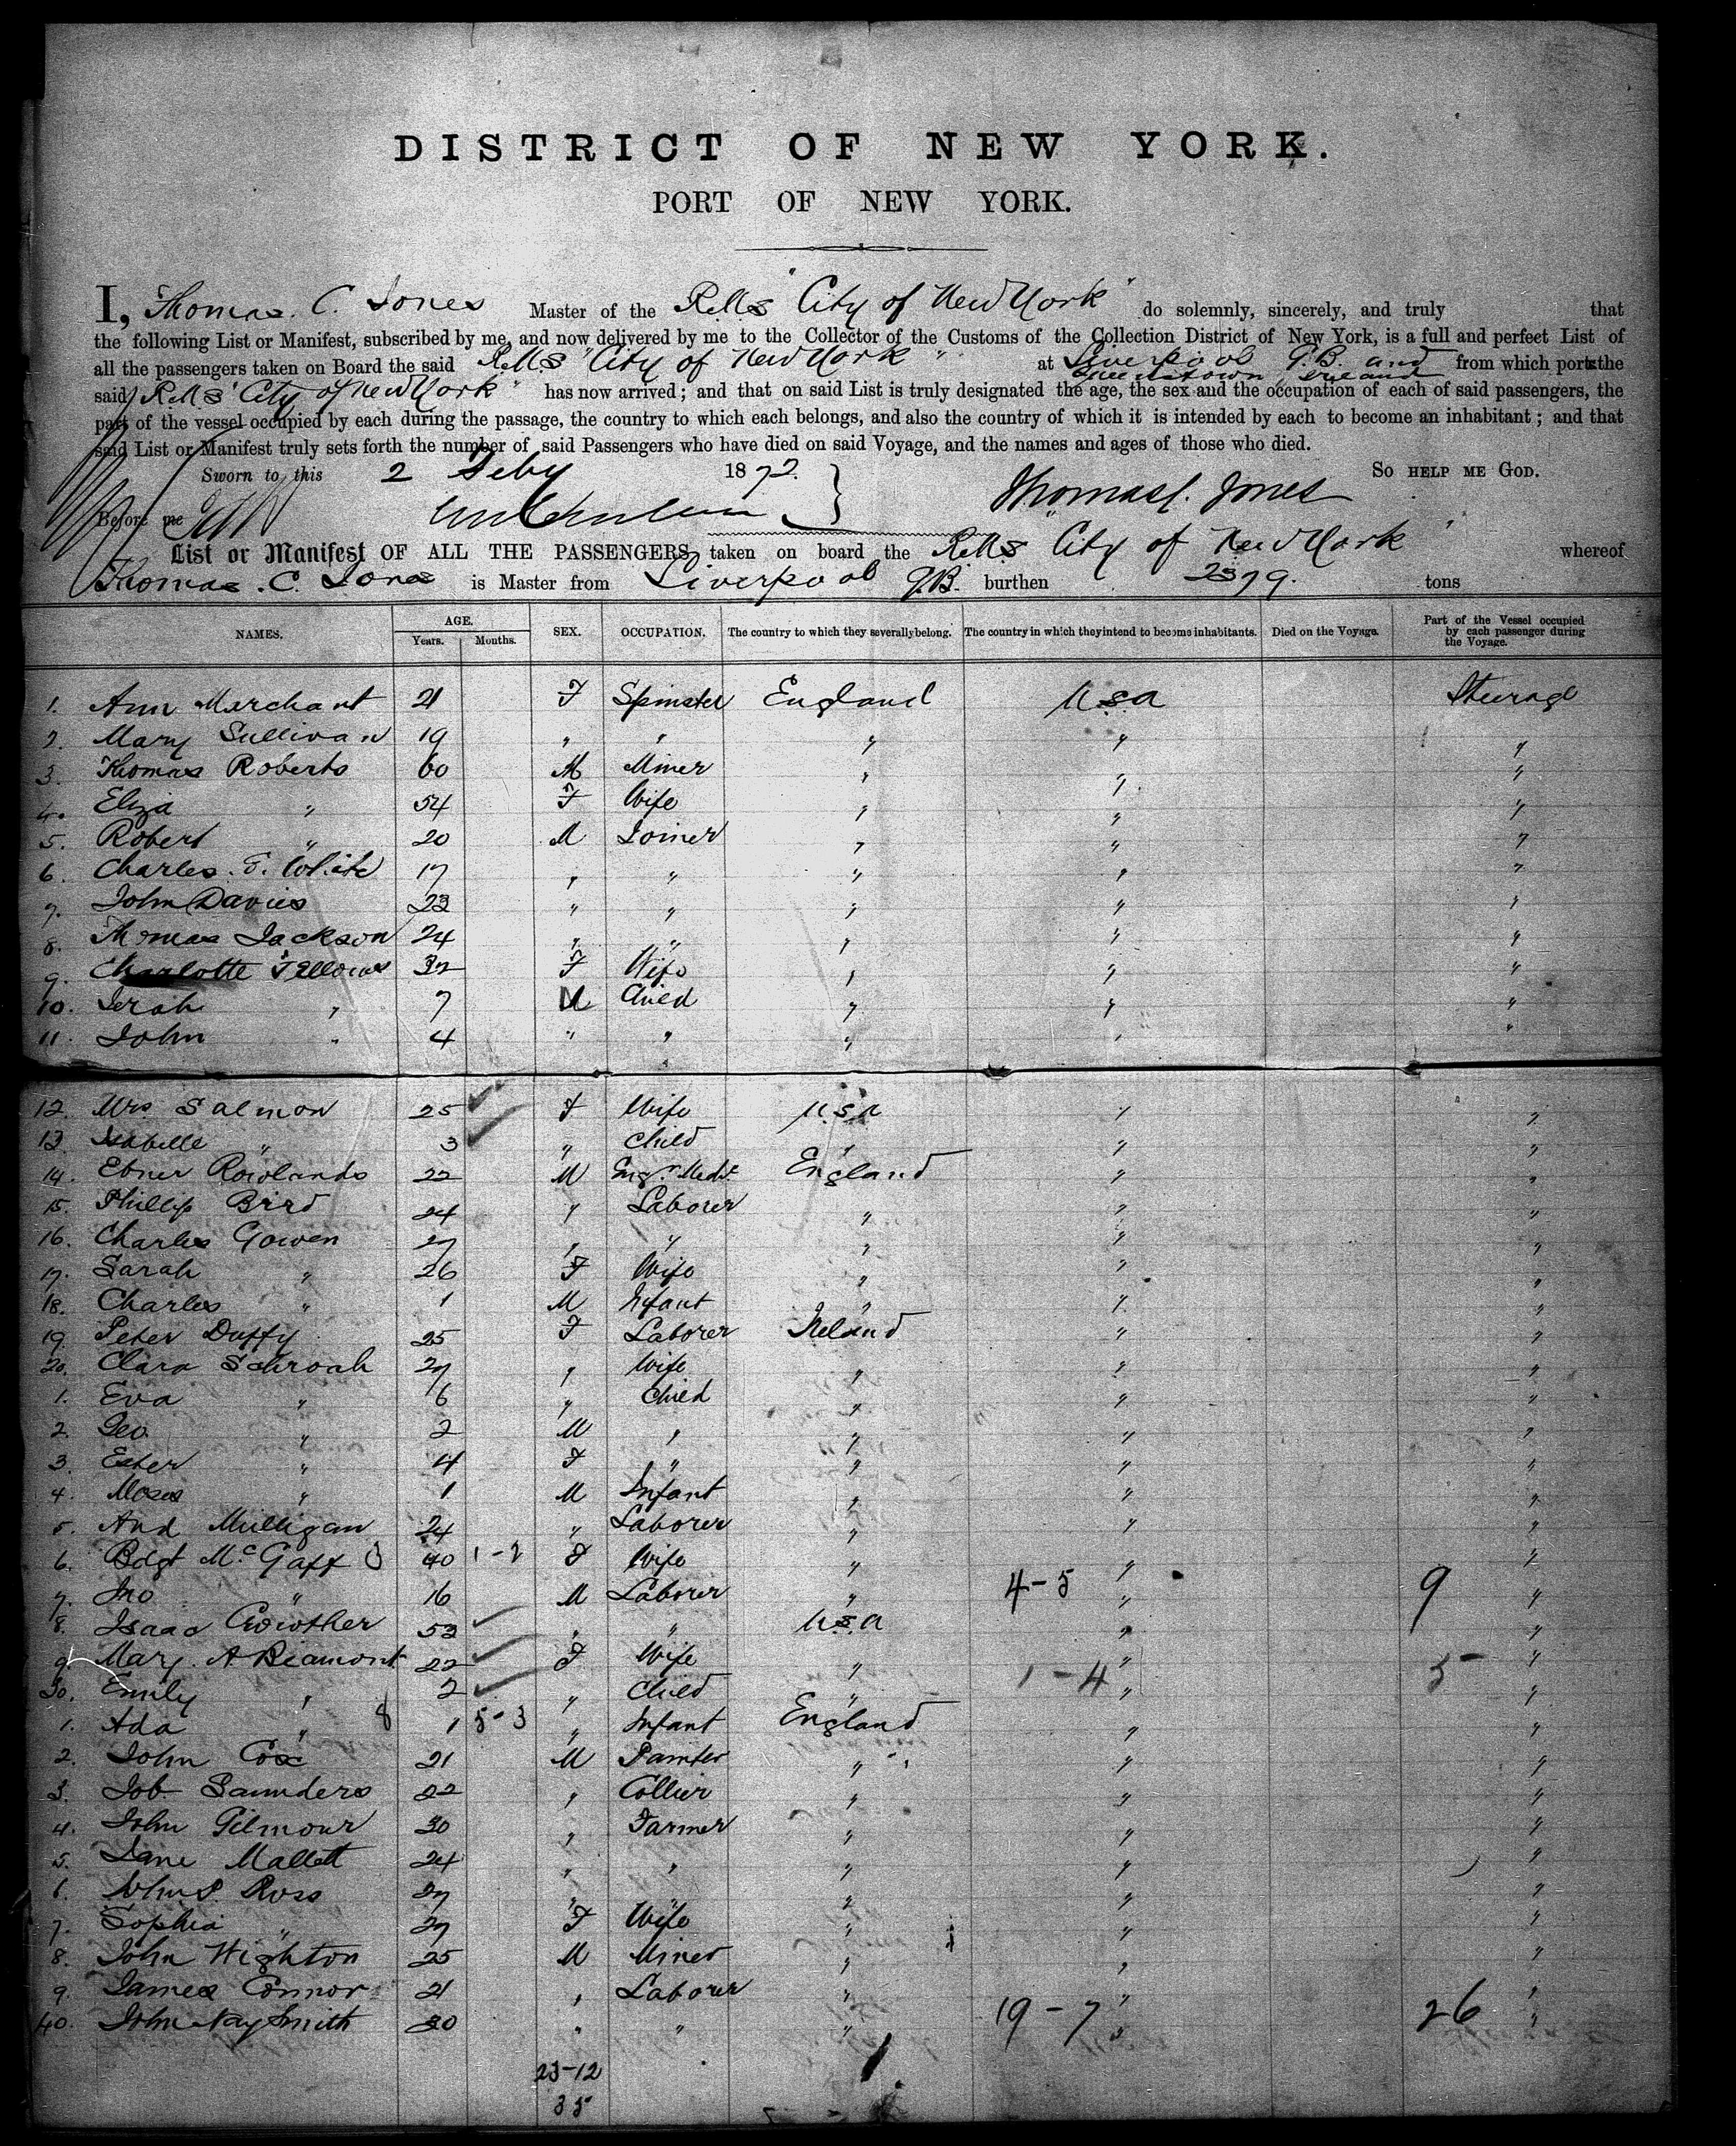 DISTRICT OF NEW YORK.
PORT OF NEW YORK.
I, Thomas. C. Jones Master of the R.M.S "City of New York" do solemnly, sincerely, and truly that
the following List or Manifest, subscribed by me, and now delivered by me to the Collector of the Customs of the Collection District of New York, is a full and perfect List of
all the passengers taken on Board the said R.M.S "City of New York" at Liverpool G.B. and Queenstown Ireland from which ports the
said R.M.S "City of New York" has now arrived; and that on said List is truly designated the age, the sex and the occupation of each of said passengers, the
part of the vessel occupied by each during the passage, the country to which each belongs, and also the country of which it is intended by each to become an inhabitant; and that
said List or Manifest truly sets forth the number of said Passengers who have died on said Voyage, and the names and ages of those who died.
Sworn to this 2 Feby 1872. So HELP ME GOD.
Before me Thomas C. Jones
List or Manifest OF ALL THE PASSENGERS taken on board the R.M.S "City of New York" whereof
Thomas. C. Jones is Master from Liverpool G.B. burthen 2379. tons
NAMES. AGE. Years. Months. SEX. OCCUPATION. The country to which they severally belong. The country in which they intend to become inhabitants. Died on the Voyage. Part of the Vessel occupied by each passenger during the Voyage.
1. Ann Marchant 21 F Spinster England U.S.A Steerage
2. Mary Sullivan 19 " " " " "
3. Thomas Roberts 60 M Miner " " "
4. Eliza " 54 F Wife " " "
5. Robert " 20 M Joiner " " "
6. Charles. F. White 17 " " " " "
7. John Davies 23 " " " " "
8. Thomas Jackson 24 " " " " "
9. Charlotte Fellows 32 F Wife " " "
10. " 7 M Child " " "
11. John " 4 " " " " "
12. Mrs Salmon 25 F Wife U.S.A " "
13. Isabelle " 3 " Child " " "
14. Ebner Rowlands 22 M England " "
15. Phillip Bird 24 " Laborer " " "
16. Charles Gowen 27 " " " " "
17. Sarah " 26 F Wife " " "
18. Charles " 1 M Infant " " "
19. Peter Duffy 25 F Laborer Ireland " "
20. Clara Schroah 27 " Wife " " "
1. Eva " 6 " Child " " "
2. Geo. " 2 M " " " "
3. Ester " 4 F " " " "
4. Moses " 1 M Infant " " "
5. And Milligan 24 " Laborer " " "
6. Bdgt McGaff 3 40 1-2 F Wife " " "
7. Jno " 16 M Laborer " 4-5 " 9 "
8. Isaac Crowther 53 " " U.S.A " "
9. Mary. A Beamont 22 F Wife " " "
30. Emily " 2 " Child " 1-4 " 5 "
1. Ada " 8 1 5-3 " Infant England " "
2. John Cox 21 M Painter " " "
3. Job Saunders 22 " Collier " " "
4. John Gilmour 30 " Farmer " " "
5. Jane Mallett 24 " " " " "
6. Ross 27 " " " " "
7. Sophia " 27 F Wife " " "
8. John Wighton 25 M Miner " " "
9. James Connor 21 " Laborer " " "
40. John Nay Smith 30 " " " 19-7 " 26 "
23-12
35
1